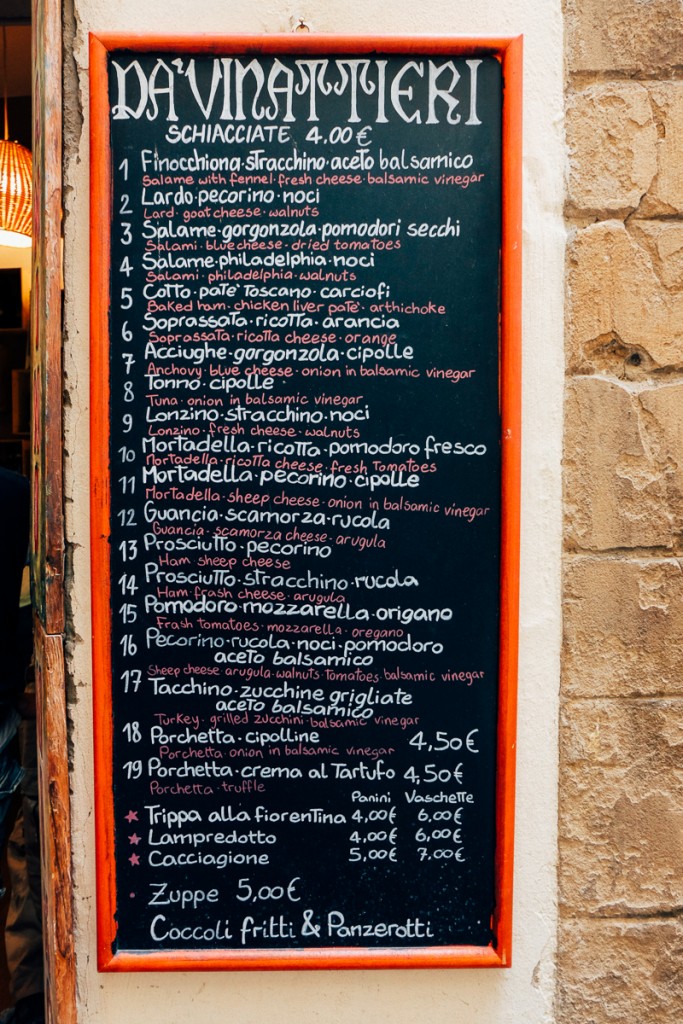 DA' VINATTIERI
SCHIACCIATE 4,00 €
1 Finocchiona·stracchino·aceto balsamico
Salame with fennel·fresh cheese·balsamic vinegar
2 Lardo·pecorino·noci
Lard·goat cheese·walnuts
3 Salame·gorgonzola·pomodori secchi
Salami·blue cheese·dried tomatoes
4 Salame·philadelphia·noci
Salami·philadelphia·walnuts
5 Cotto·patè Toscano·carciofi
Baked ham·chicken liver patè·arthichoke
6 Soprassata·ricotta·arancia
Soprassata·ricotta cheese·orange
7 Acciughe·gorgonzola·cipolle
Anchovy·blue cheese·onion in balsamic vinegar
8 Tonno·cipolle
Tuna·onion in balsamic vinegar
9 Lonzino·stracchino·noci
Lonzino·fresh cheese·walnuts
10 Mortadella·ricotta·pomodoro fresco
Mortadella·ricotta cheese·fresh Tomatoes
11 Mortadella·pecorino·cipolle
Mortadella·sheep cheese·onion in balsamic vinegar
12 Guancia·scamorza·rucola
Guancia·scamorza cheese·arugula
13 Prosciutto·pecorino
Ham·sheep cheese
14 Prosciutto·stracchino·rucola
Ham·frash cheese·arugula
15 Pomodoro·mozzarella·origano
Frash tomatoes·mozzarella·oregano
16 Pecorino·rucola·noci·pomodoro
aceto balsamico
Sheep cheese·arugula·walnuts·Tomatoes·balsamic vinegar
17 Tacchino·zucchine grigliate
aceto balsamico
Turkey·grilled zucchini·balsamic vinegar
18 Porchetta·cipolline 4,50€
Porchetta·onion in balsamic vinegar
19 Porchetta·crema al Tartufo 4,50€
Porchetta·truffle
Panini Vaschette
Trippa alla fiorentina 4,00€ 6,00€
Lampredotto 4,00€ 6,00€
Cacciagione 5,00€ 7,00€
Zuppe 5,00€
Coccoli fritti & Panzerotti